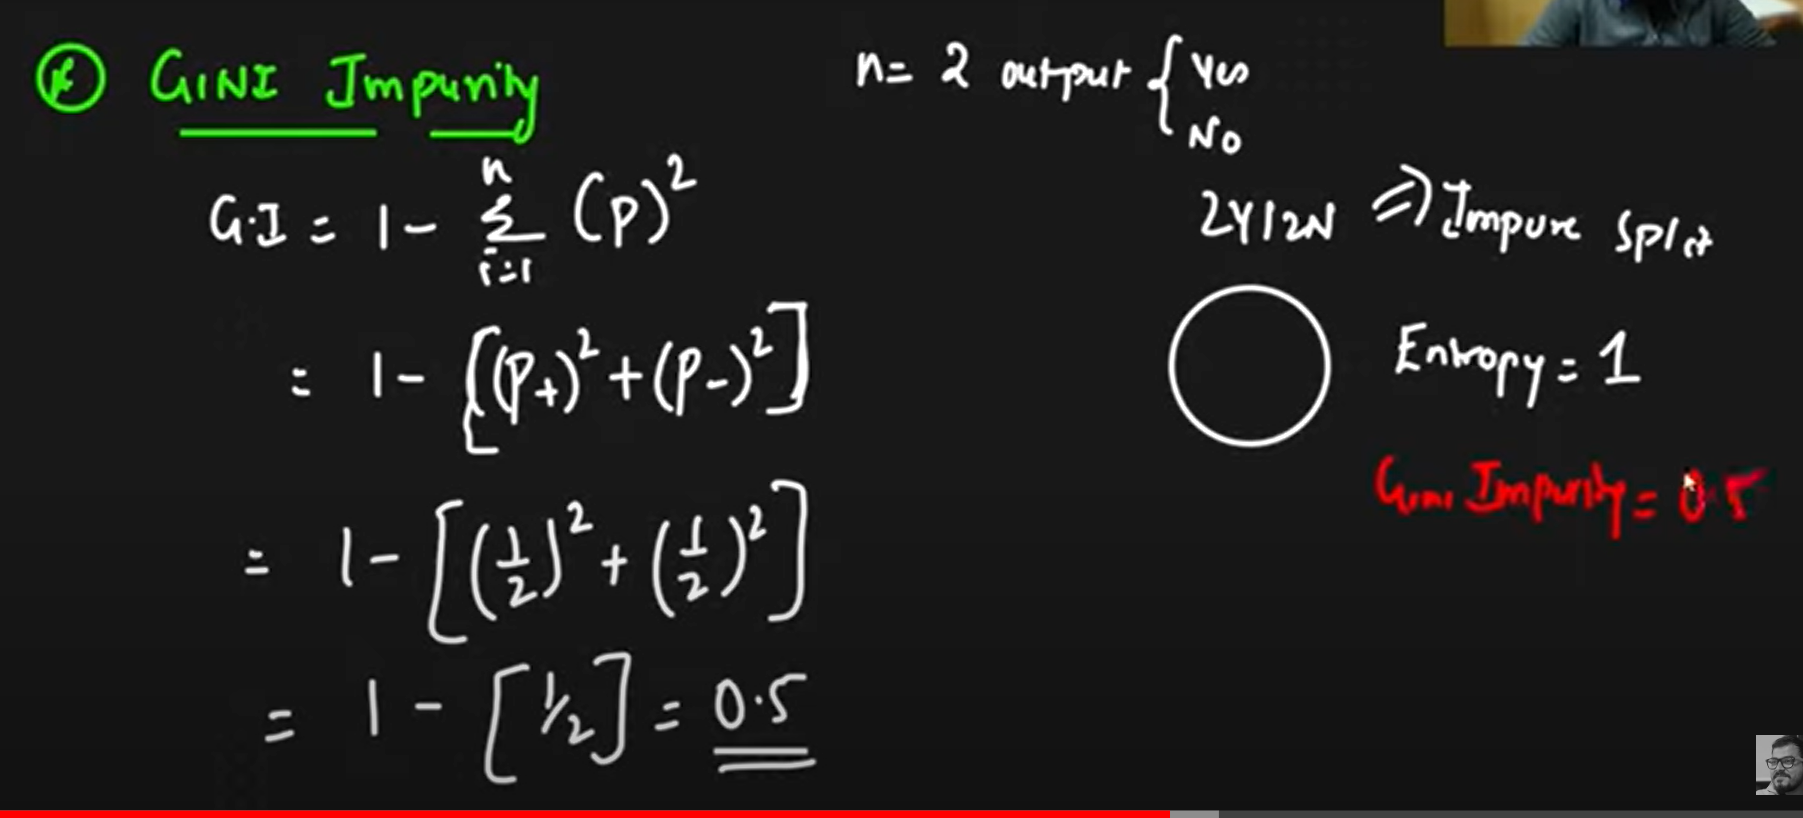 GINI Impurity
G.I = 1 - Σ (p)²
n
i=1
= 1 - [(P+)² + (P-)²]
= 1 - [(1/2)² + (1/2)²]
= 1 - [1/2] = 0.5
n = 2 output { Yes
No
2Y|2N ⇒ Impure Split
Entropy = 1
Gini Impurity = 0.5